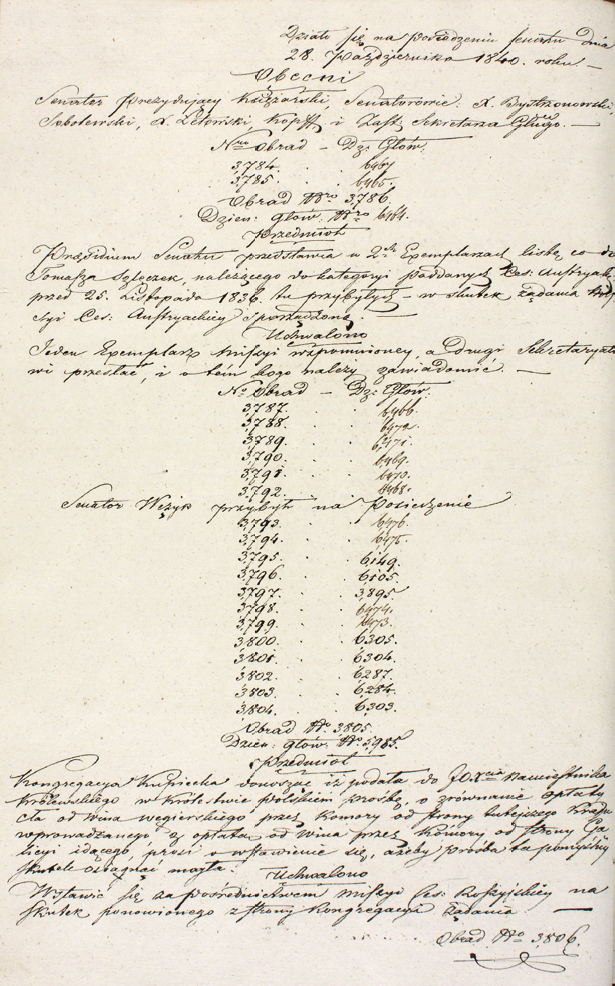 Działo się na posiedzeniu Senatu dnia
28. Października 1840. roku. —
Obecni
Senator Prezydujący Księżarski, Senatorowie: X. Bystrzonowski,
Sobolewski, X. Łętowski, Kopff, i Zastę. Sekretarza Gługo. —
Nro Obrad — Dz: Głów.
3,784. . 6467
3,785 . 6465.
Obrad Nro 3,786.
Dzien: Głów. Nro 6464.
Przedmiot
Prezydium Senatu przedstawia w 2ch Exemplarzach listę, co do
Tomasza należącego do kategoryi poddanych Ces: Austryak
przed 25. Listopada 1836. tu przybyłych — w skutek żądania
syi Ces: Austryackiej sporządzoną. —
Uchwalono
Jeden Exemplarz Missyi wspomnioney, a drugi Sekretaryato
wi przesłać, i o tem kogo należy zawiadomić. —
Nr Obrad — Dz: Głów.
3,787. . 6466.
3,788. . 6472.
3,789. . 6471.
3,790. . 6469.
3,791. . 6470.
3,792. . 6468.
Senator Wężyk przybył na Posiedzenie
3,793. . 6476.
3,794. . 6475.
3,795. . 6149.
3,796. . 6105.
3,797. . 3,895.
3,798. . 6474.
3,799. . 6473.
3,800. . 6305.
3,801. . 6304.
3,802. . 6287.
3,803. . 6284.
3,804. . 6303.
Obrad Nr. 3,805.
Dzien: Głów. Nr. 5,985.
Przedmiot
Kongregacya Kupiecka donosząc iż podała do JO. Xcia Namiestnika
Królewskiego w Królestwie Polskiem prośbę, o zrównanie opłaty
cła od wina węgierskiego przez Komory od strony tutejszego Kraju
wprowadzanego z opłatą od wina przez Komory od strony Ga-
licyi idącego, prosi o wstawienie się, ażeby prośba ta pomyślny
skutek osiągnąć mogła.
Uchwalono
Wstawić się za pośrednictwem Missyi Ces: Rossyjskiej na
skutek ponowionego z strony Kongregacyi żądania. —
Obrad Nro 3,806.